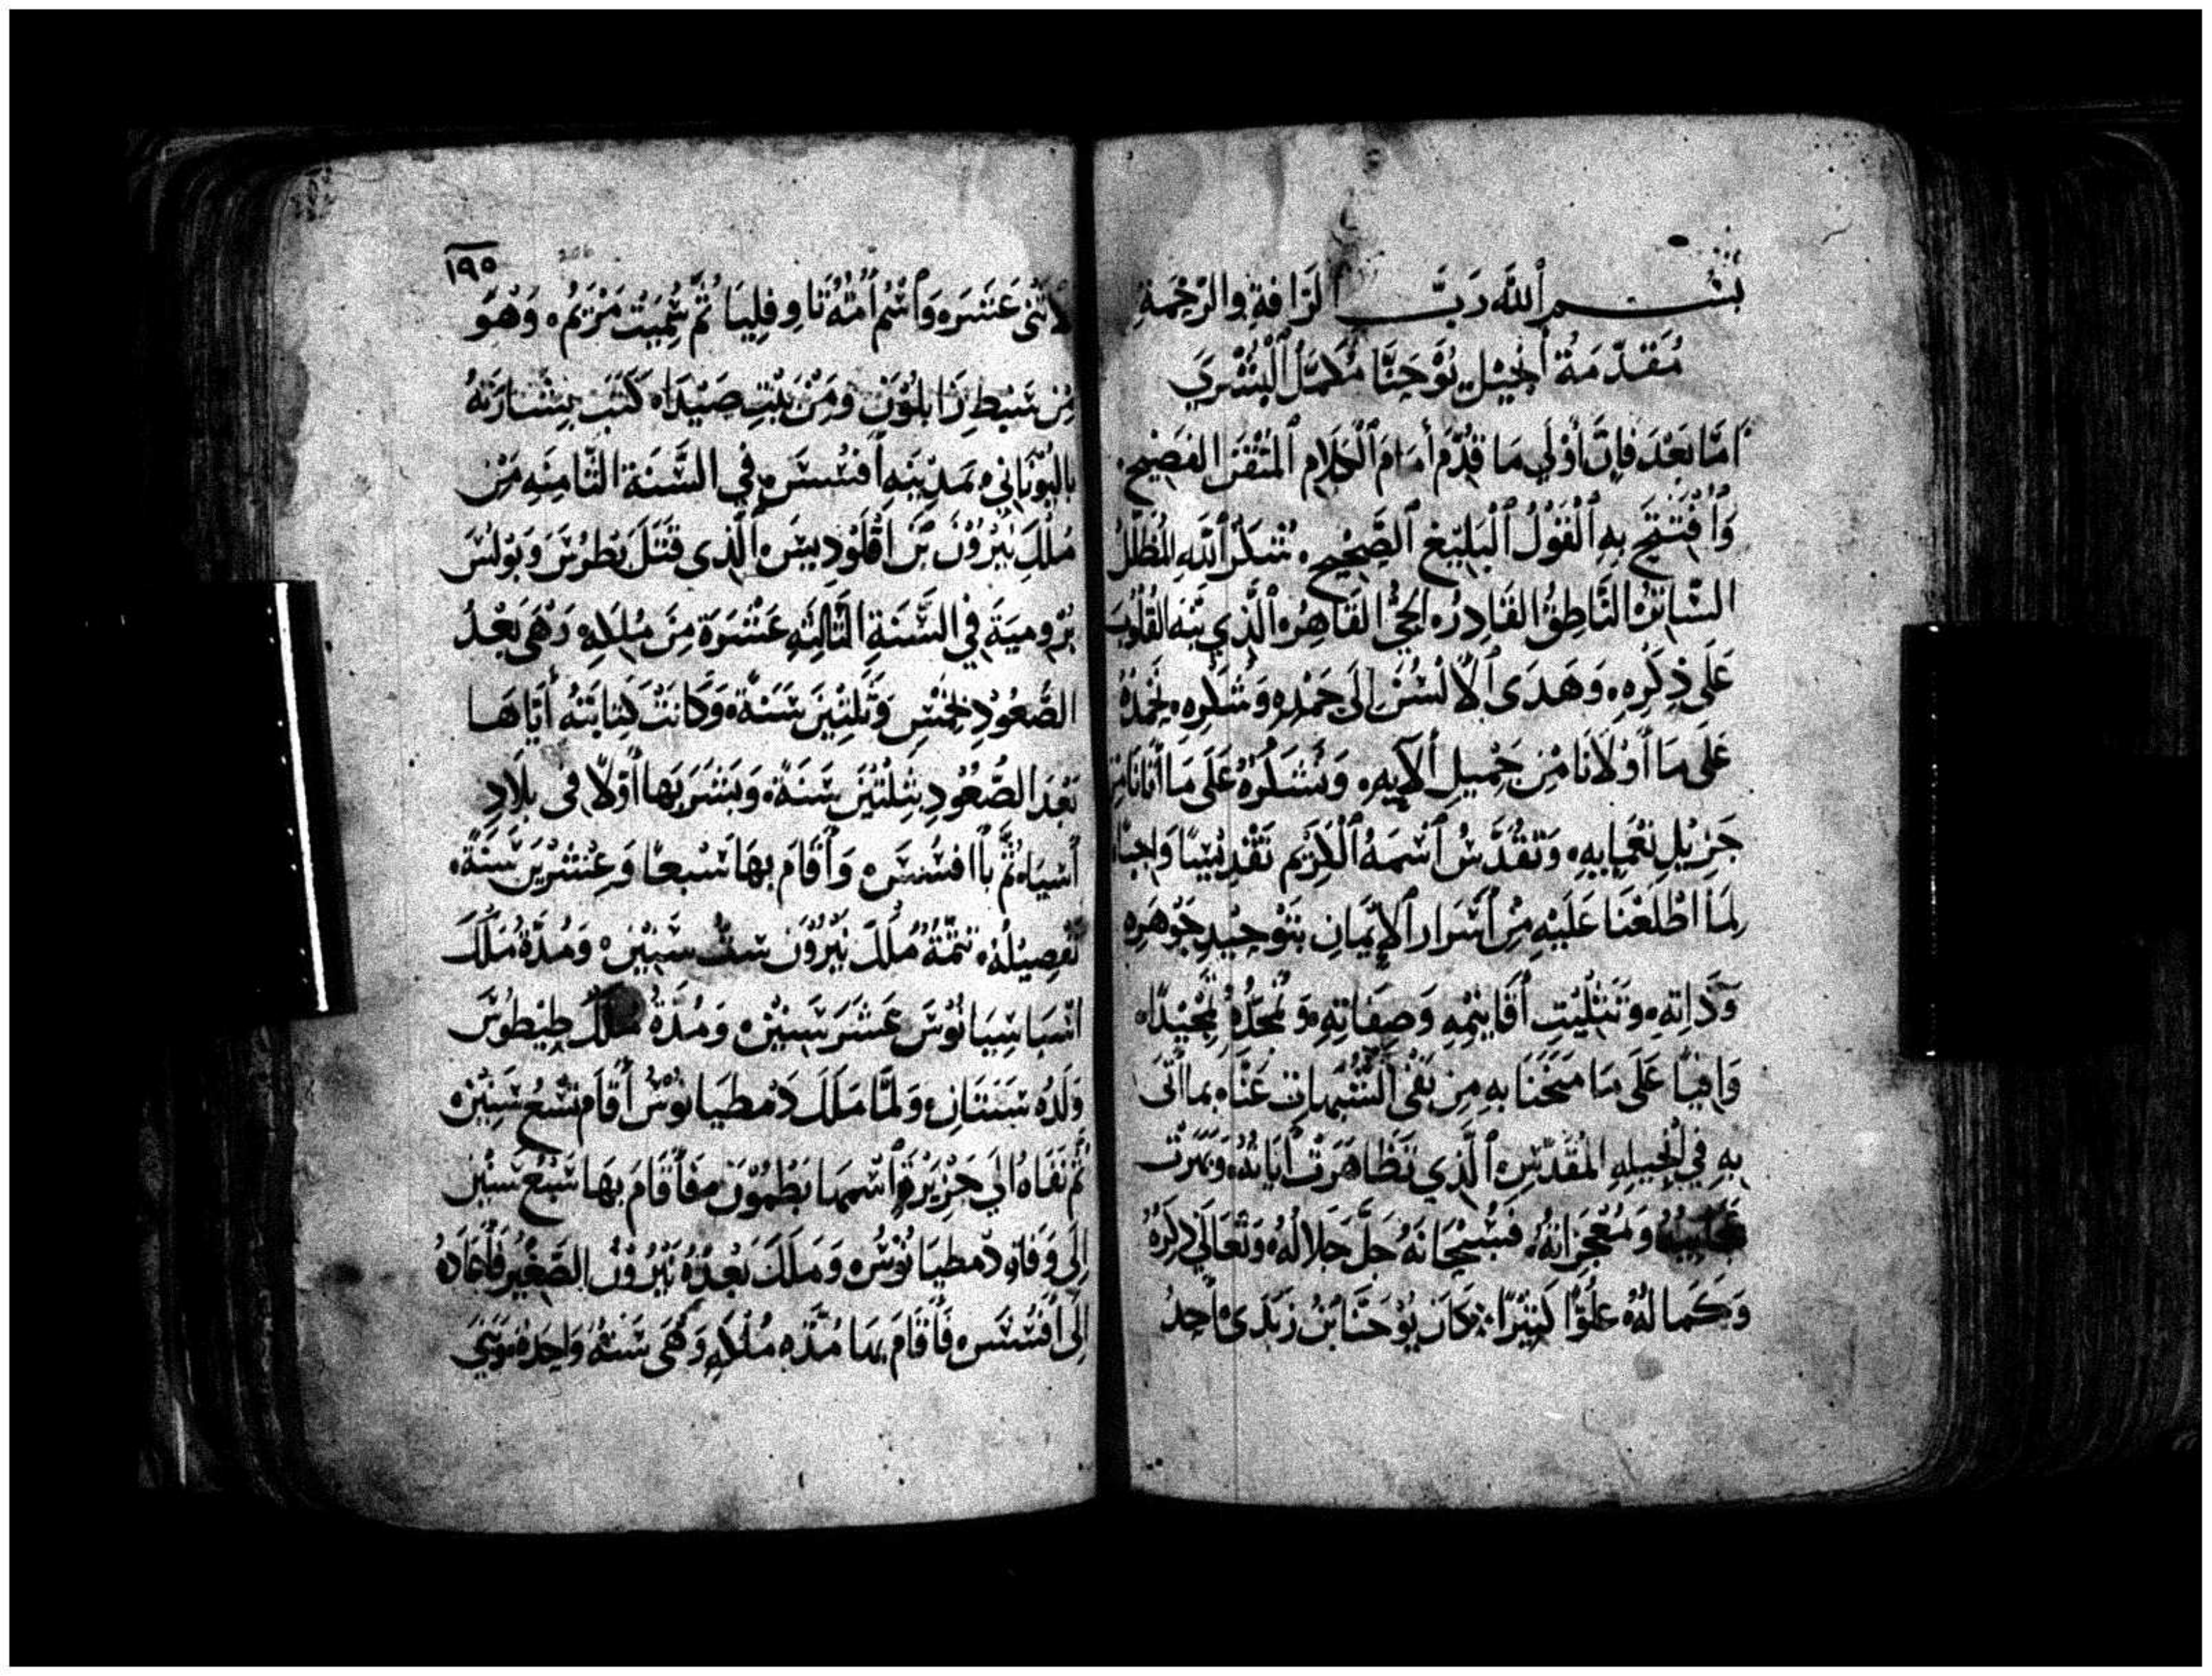 بسم الله رب الرافة والرحمة
مقدمة انجيل يوحنا مكمل البشري
اما بعد فان أولي ما قدم أمام الكلام المتقن الفصيح
وافتتح به القول البليغ الصحيح شكر الله
الناطق القادر الحي القاهر الذي نبه القلوب
على ذكره وهدى الالسن إلى حمده وشكره نحمده
على ما أولانا من جميل ألآيه ونشكره على ما أتانا من
جزيل نعمايه ونقدس اسمه الكريم تقديسا واجبا
لما اطلعنا عليه من اسرار الايمان بتوحيد جوهره
وذاته وتثليت أقانيمه وصفاته ونمجده تمجيدا
وافيا على ما منحنا به من نفى الشبهات عنا بما اتى
به في انجيله المقدس الذي تظاهرت اياته وبهرت
عجايبه ومعجزاته فسبحانه جل جلاله وتعالى ذكره
وكماله علوا كبيرا كان يوحنا بن زبدى احد
١٩٥
لاثنى عشره واسم أمه تاوفليا ثم سميت مريم وهو
من سبط زابلون ومن بيت صيدا كتب بشارته
باليوناني بمدينه افسس في السنة الثامنه من
ملك نيرون بن اقلوديس الذى قتل بطرس وبولس
برومية في السنة الثالثه عشرة من ملكه وهى بعد
الصعود لخمس وثلثين سنة وكانت كتابته أياها
بعد الصعود بثلثين سنة وبشر بها أولا فى بلاد
أسيا ثم باافسس وأقام بها سبعا وعشرين سنة
تفصيله تتمة ملك نيرون ست سنين ومدة ملك
اسباسيانوس عشر سنين ومدة ملك طيطوس
ولده سنتان ولما ملك دمطيانوس أقام تسع سنين
ثم نفاه الي جزيرة اسمها بطمون فأقام بها سبع سنين
إلى وفاة دمطيانوس وملك بعده نيرون الصغير فأعاده
إلى افسس فأقام بها مدة ملكه وهى سنة واحده وبقى